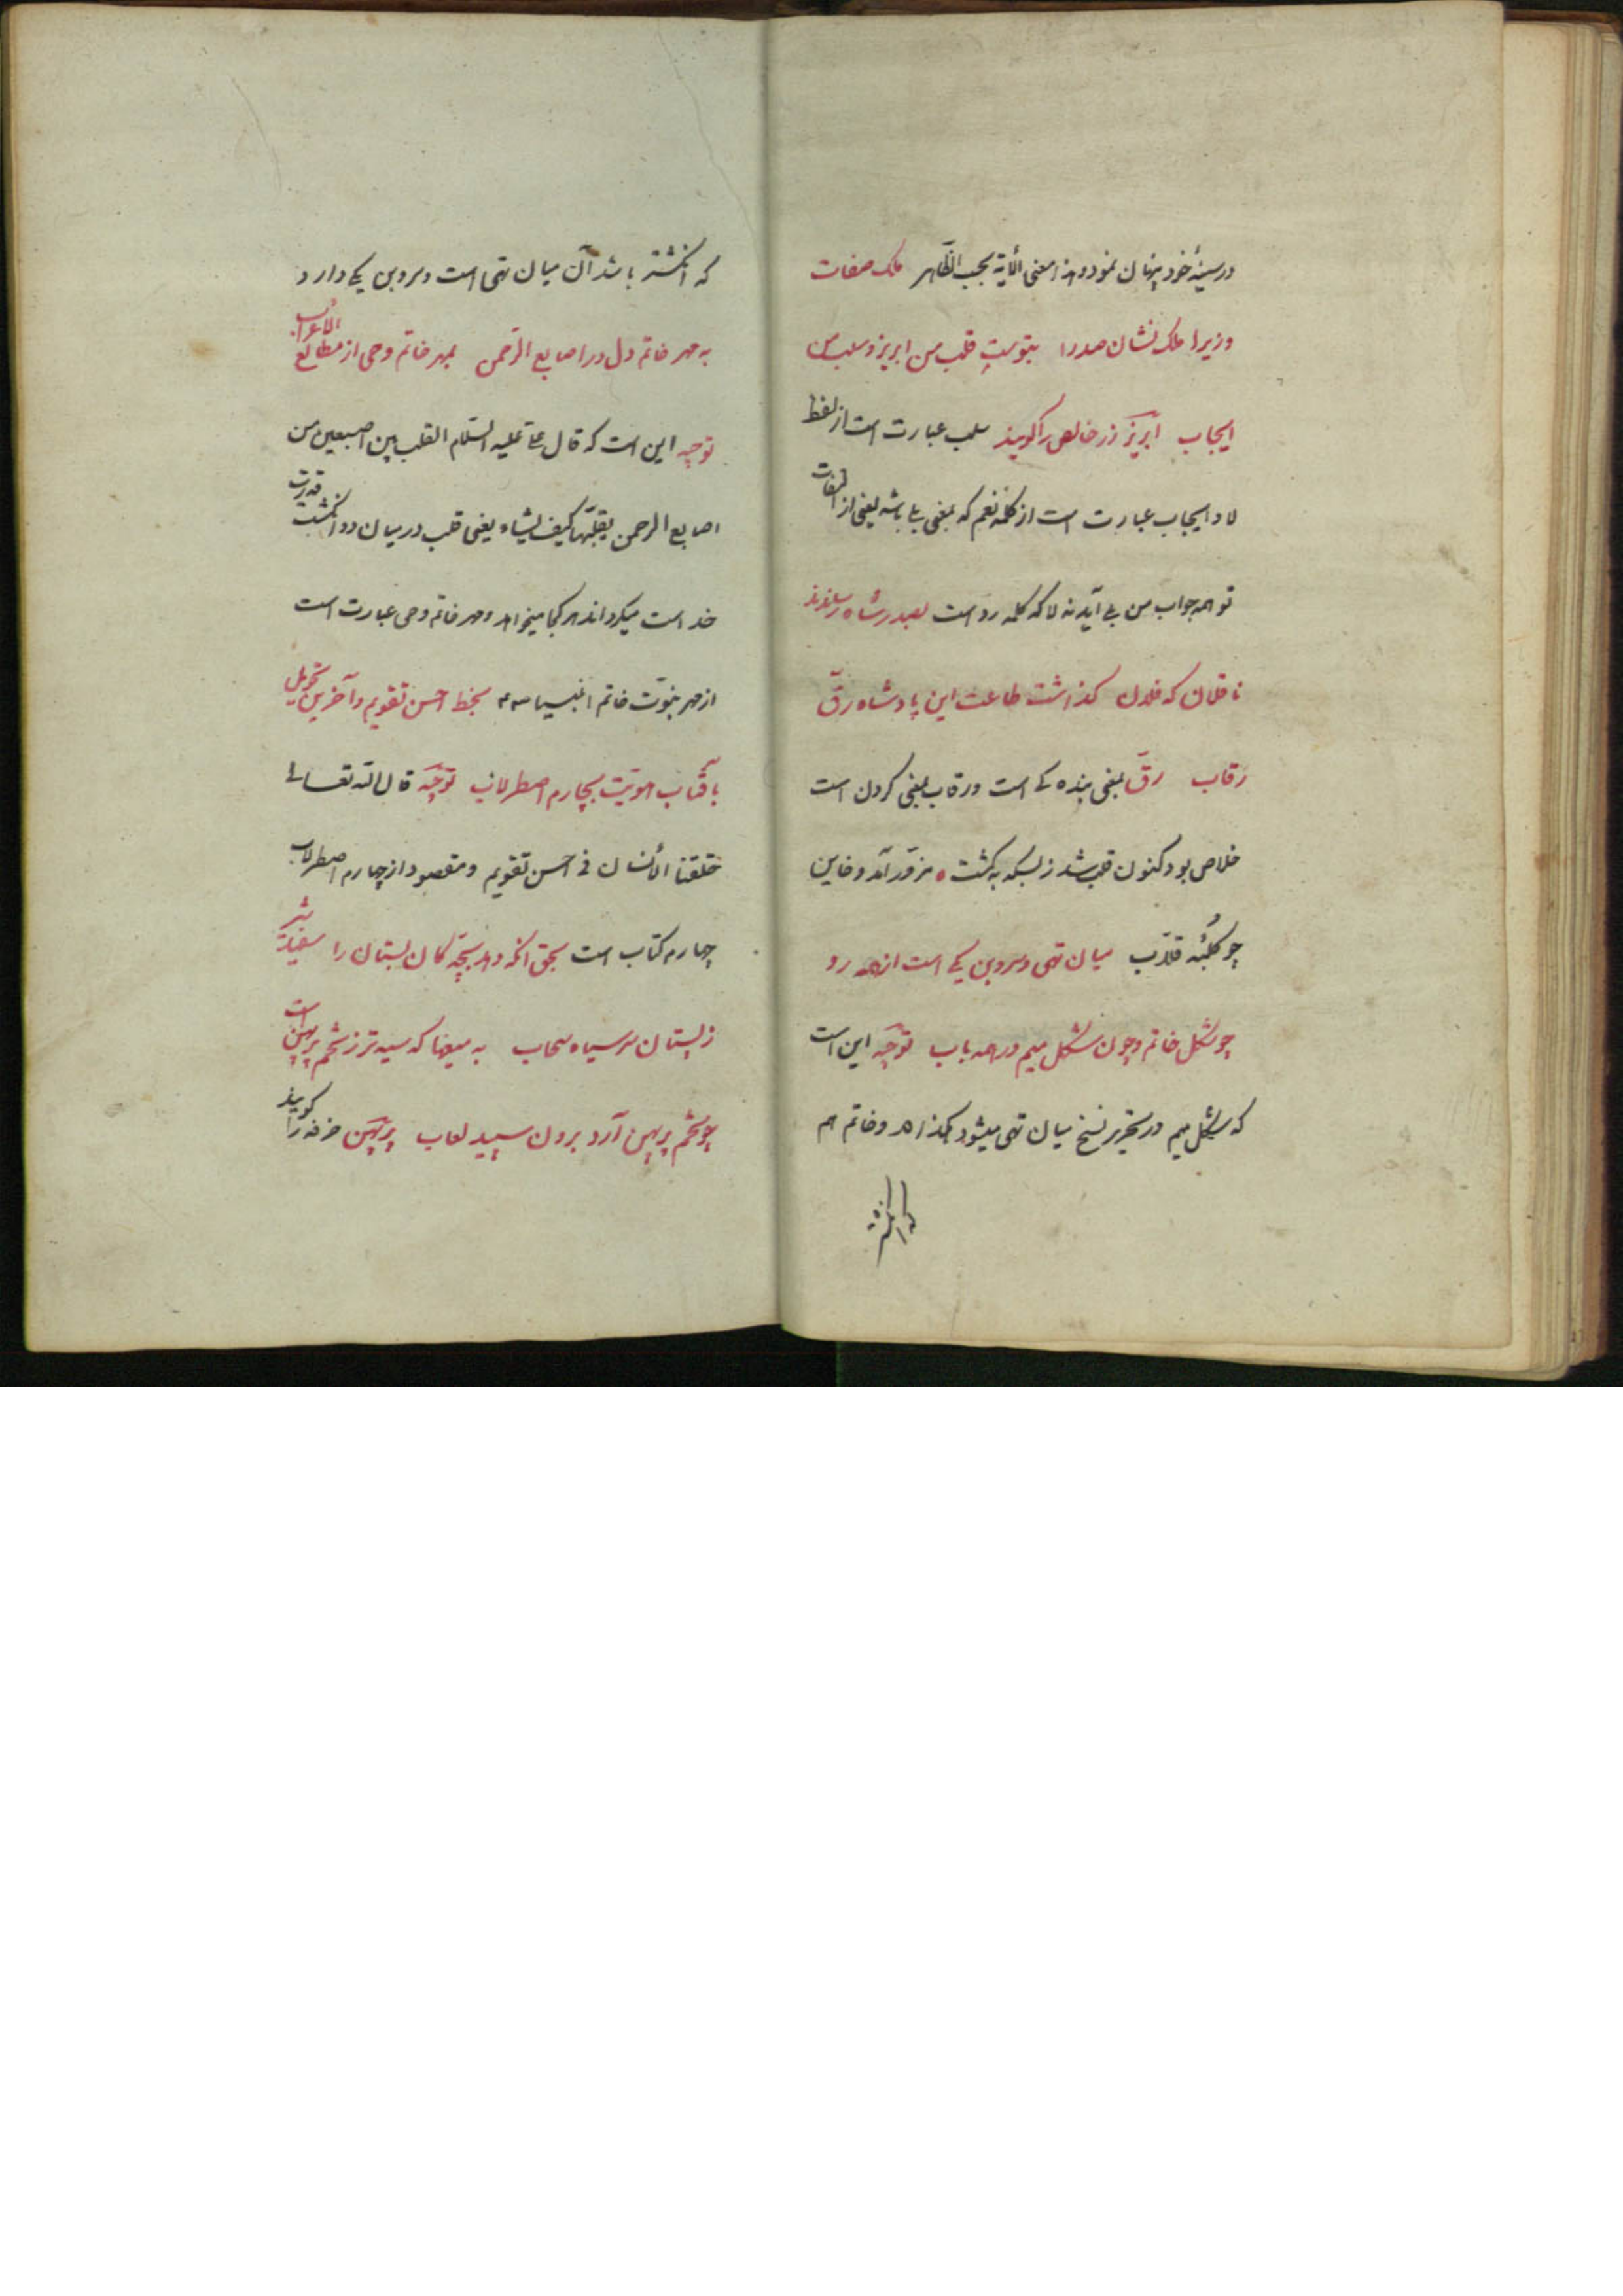 در سینهٔ خود پنهان نمود و هذا معنی الآیة بحسب الظّاهر ملک صفات
وزیرا ملک نشان صدرا بتوست قلب من ابریز و سلب من
ایجاب ابریز زر خالص را گویند سلب عبارت است از لفظ
لا و ایجاب عبارت است از کلمه نعم که بمعنی بلی باشد یعنی از التفات
تو همه جواب من بلی آید نه لا که کلمه رد است بصدر شاه رساندند
ناقلان که فلان گذاشت طاعت این پادشاه رقّ
رقاب رقّ بمعنی بنده کی است و رقاب بمعنی گردن است
خلاص بود کنون قلب شد ز سکه بگشت مزوّر آمد و خاین
چو گلبهٔ قلاّب میان تهی و سر و بن یکی است از همه رو
چو شکل خاتم و چون شکل میم در همه باب توجیه این است
که شکل میم در تحریر نسخ میان تهی میشود هکذا مـ و خاتم هم
که انگشتر
که انگشتر باشد آن میان تهی است و سر و بن یکی دارد
به مهر خاتم دل در اصابع الرّحمن بمهر خاتم وحی از مطالع الاعراب
توجیه این است که قال علیه السّلام القلب بین اصبعین من
اصابع الرحمن یقلّبها کیف یشاء یعنی قلب در میان دو انگشت قدرت
خداست میگرداند هر کجا میخواهد و مهر خاتم وحی عبارت است
از مهر نبوّت خاتم انبیا بخط احسن تقویم و آخرین تحویل
بآفتاب هویّت بچارم اصطرلاب توجیه قال الله تعالی
خلقنا الأنسان فی احسن تقویم و مقصود از چارم اصطرلاب
چهارم کتاب است بحق آنکه دهد بچّه کان بستان را سفید شیر
ز پستان سر سیاه سحاب به میضا که سیه تر ز تخم پرپهن است
چو تخم پرپهن آرد برون سپید لعاب پرپهن خرفه را گویند